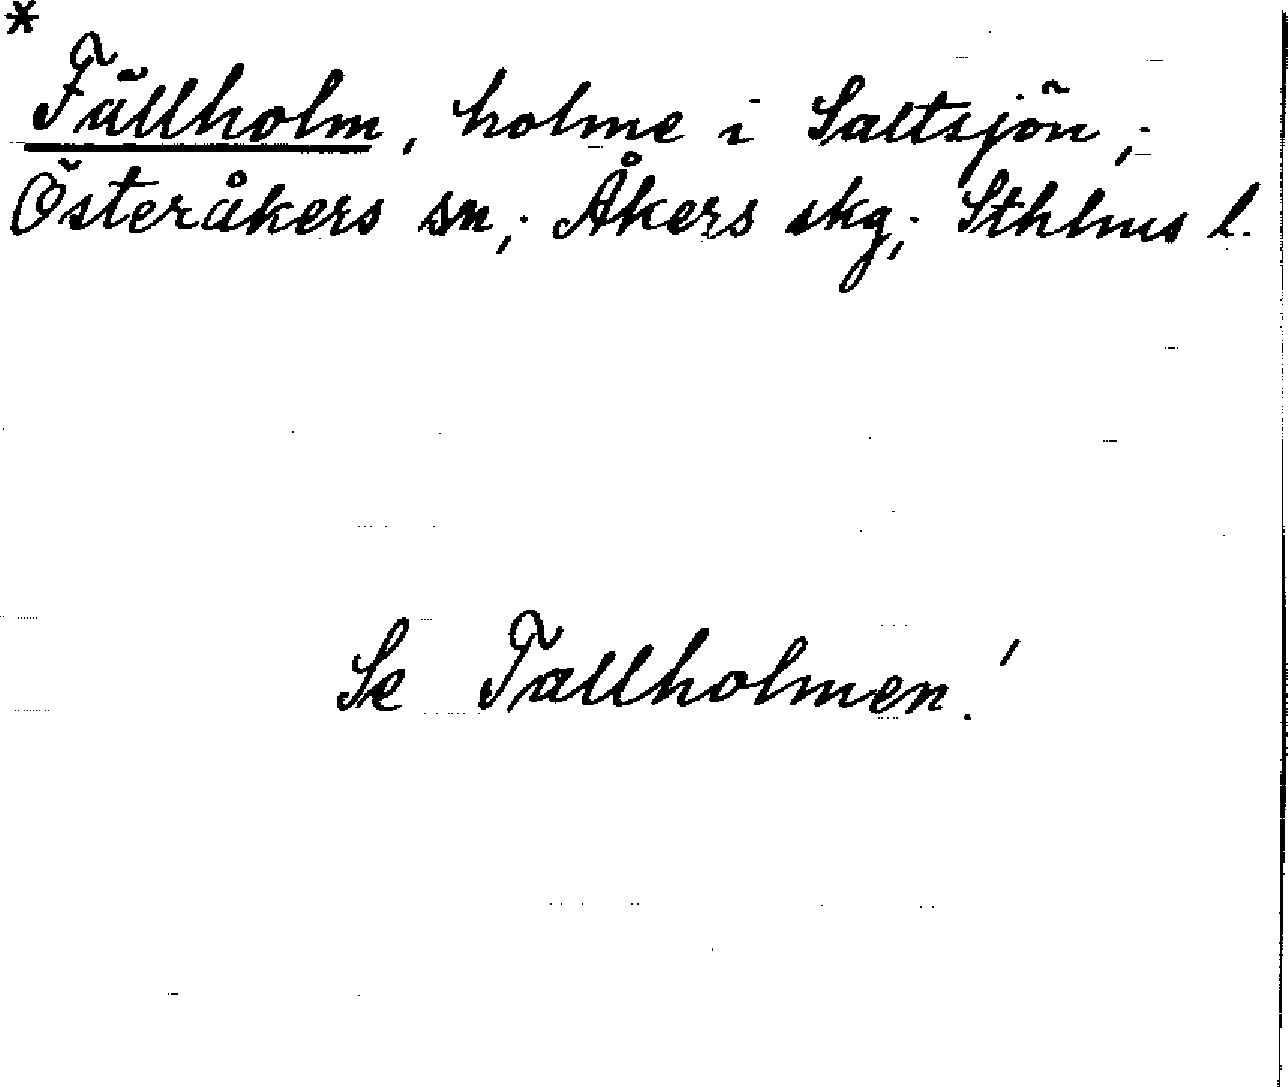 *
Fällholm, holme i Saltsjön;
Österåkers sn; Åkers skg; Sthlms l.
Se Tallholmen!